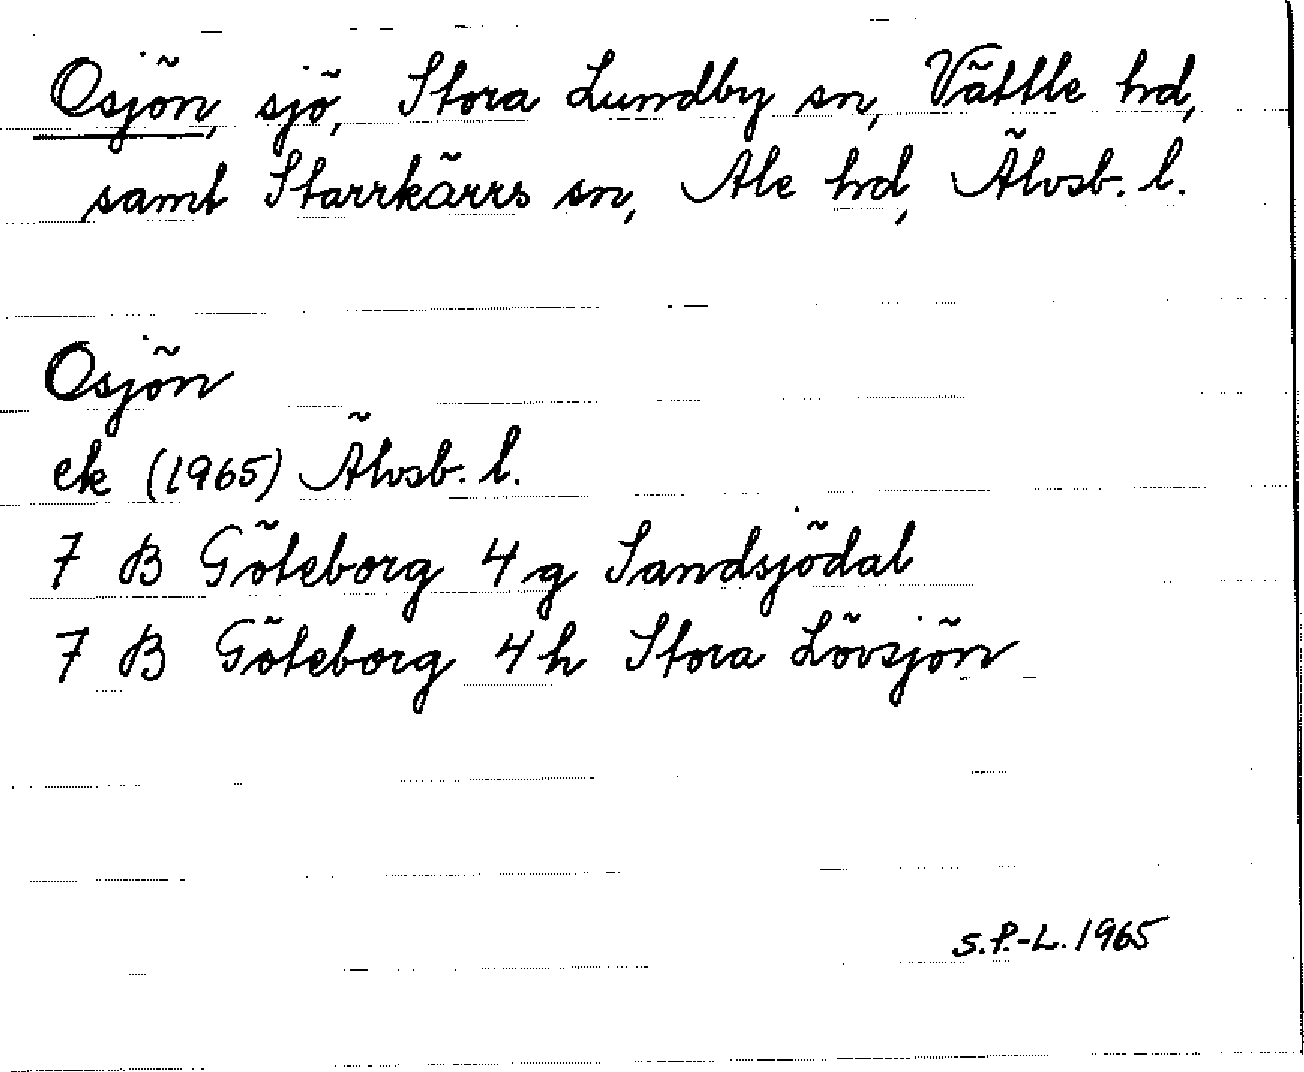 Osjön, sjö, Stora Lundby sn, Vättle hd,
samt Starrkärrs sn, Ale hd, Älvsb. l.
Osjön
ek (1965) Älvsb. l.
7 B Göteborg 4 g Sandsjödal
7 B Göteborg 4 h Stora Lövsjön
S.P.-L. 1965